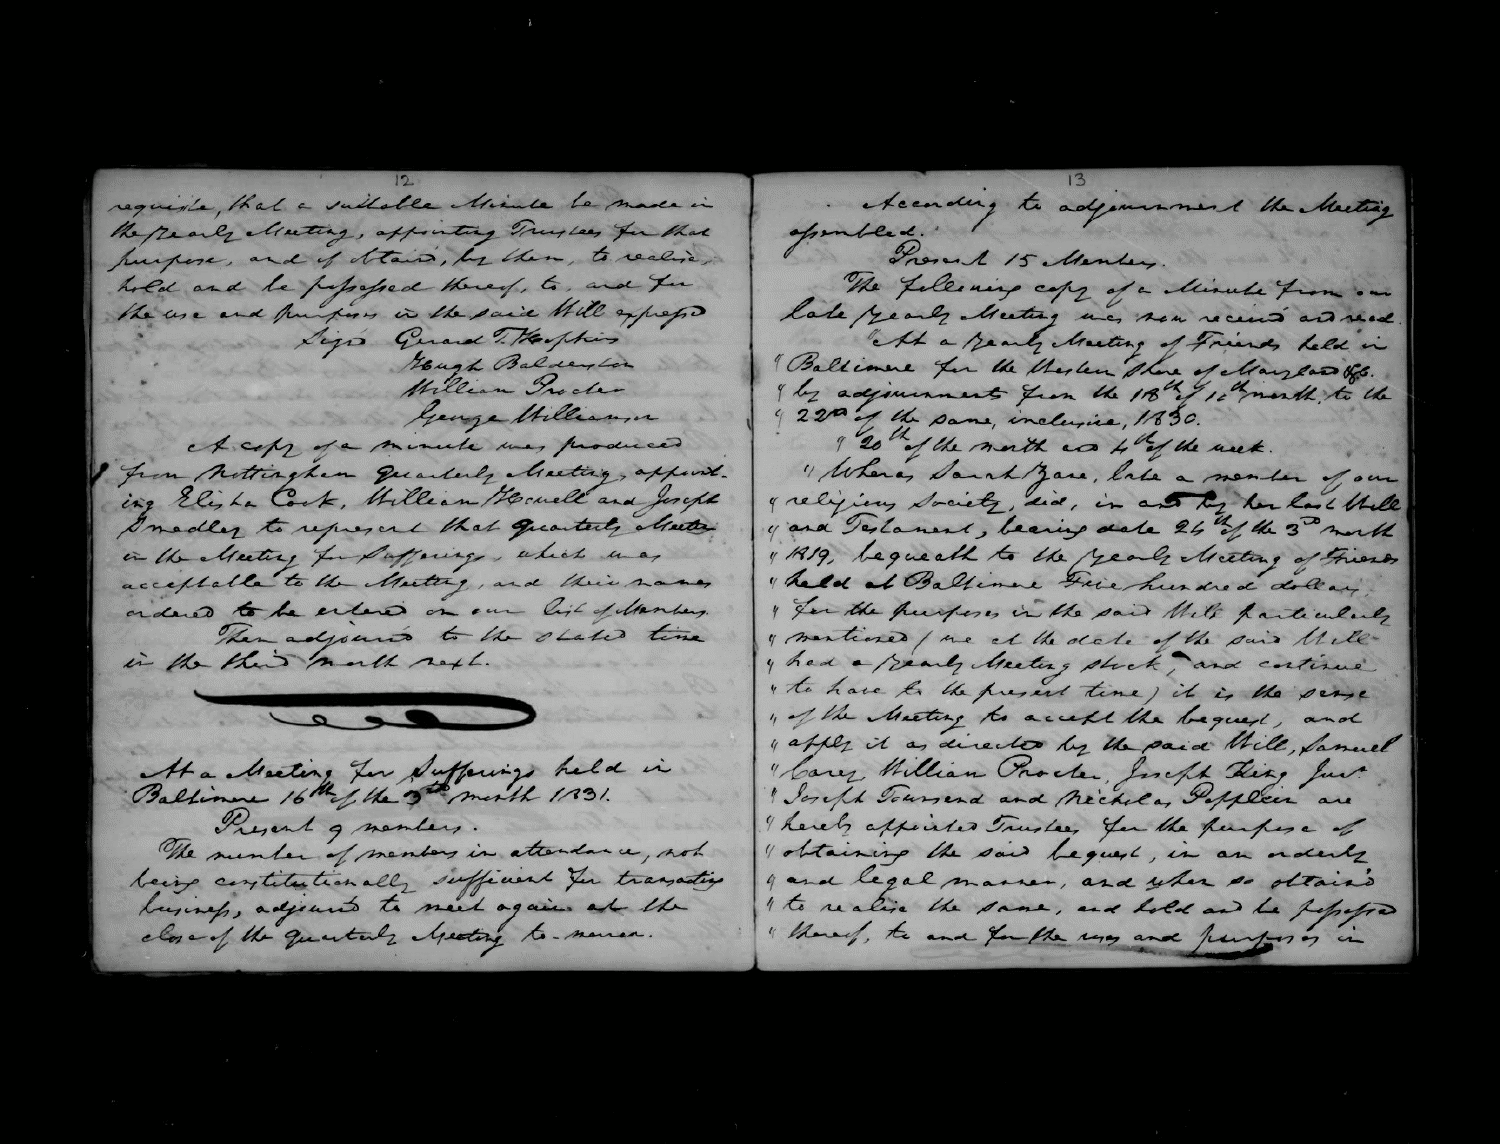 12
requisite, that a suitable Minute be made in
the Yearly Meeting, appointing Trustees for that
purpose, and if obtain'd, by them, to realise,
hold and be possessed thereof, to, and for
the use and purposes in the said Will expressed
Sign'd Gerard T. Hopkins
Hugh Balderston
William Procter
George Williamson
A copy of a minute was produced
from Nottingham Quarterly Meeting, appoint-
ing Elisha Cook, William Howell and Joseph
Smedley to represent that Quarterly Meeting
in the Meeting for Sufferings, which was
acceptable to the Meeting, and their names
ordered to be entered on our list of Members.
Then adjourn'd to the stated time
in the third month next.
At a Meeting for Sufferings held in
Baltimore 16th of the 3rd month 1831.
Present 9 members.
The number of members in attendance, not
being constitutionally sufficient for transacting
business, adjourn'd to meet again at the
close of the Quarterly Meeting to-morrow.
13
According to adjournment the Meeting
assembled.
Present 15 Members.
The following copy of a Minute from our
late Yearly Meeting was now received and read.
"At a Yearly Meeting of Friends held in
" Baltimore for the Western Shore of Maryland &c.
" by adjournments from the 18th of 10th month, to the
" 22nd of the same, inclusive, 1830.
" 20th of the month and 4th of the week.
" Whereas Sarah Zane, late a member of our
" religious Society, did, in and by her last Will
" and Testament, bearing date 24th of the 3rd month
" 1819, bequeath to the Yearly Meeting of Friends
" held at Baltimore Five hundred dollars,
" for the purposes in the said Will particularly
" mentioned (we at the date of the said Will
" had a Yearly Meeting stock, and continue
" to have to the present time) it is the sense
" of the Meeting to accept the bequest, and
" apply it as directed by the said Will, Samuel
" Carey, William Procter, Joseph King Junr
" Joseph Townsend and Nicholas Popplein are
" hereby appointed Trustees for the purpose of
" obtaining the said bequest, in an orderly
" and legal manner, and when so obtain'd
" to realise the same, and hold and be possessed
" thereof, to and for the uses and purposes in